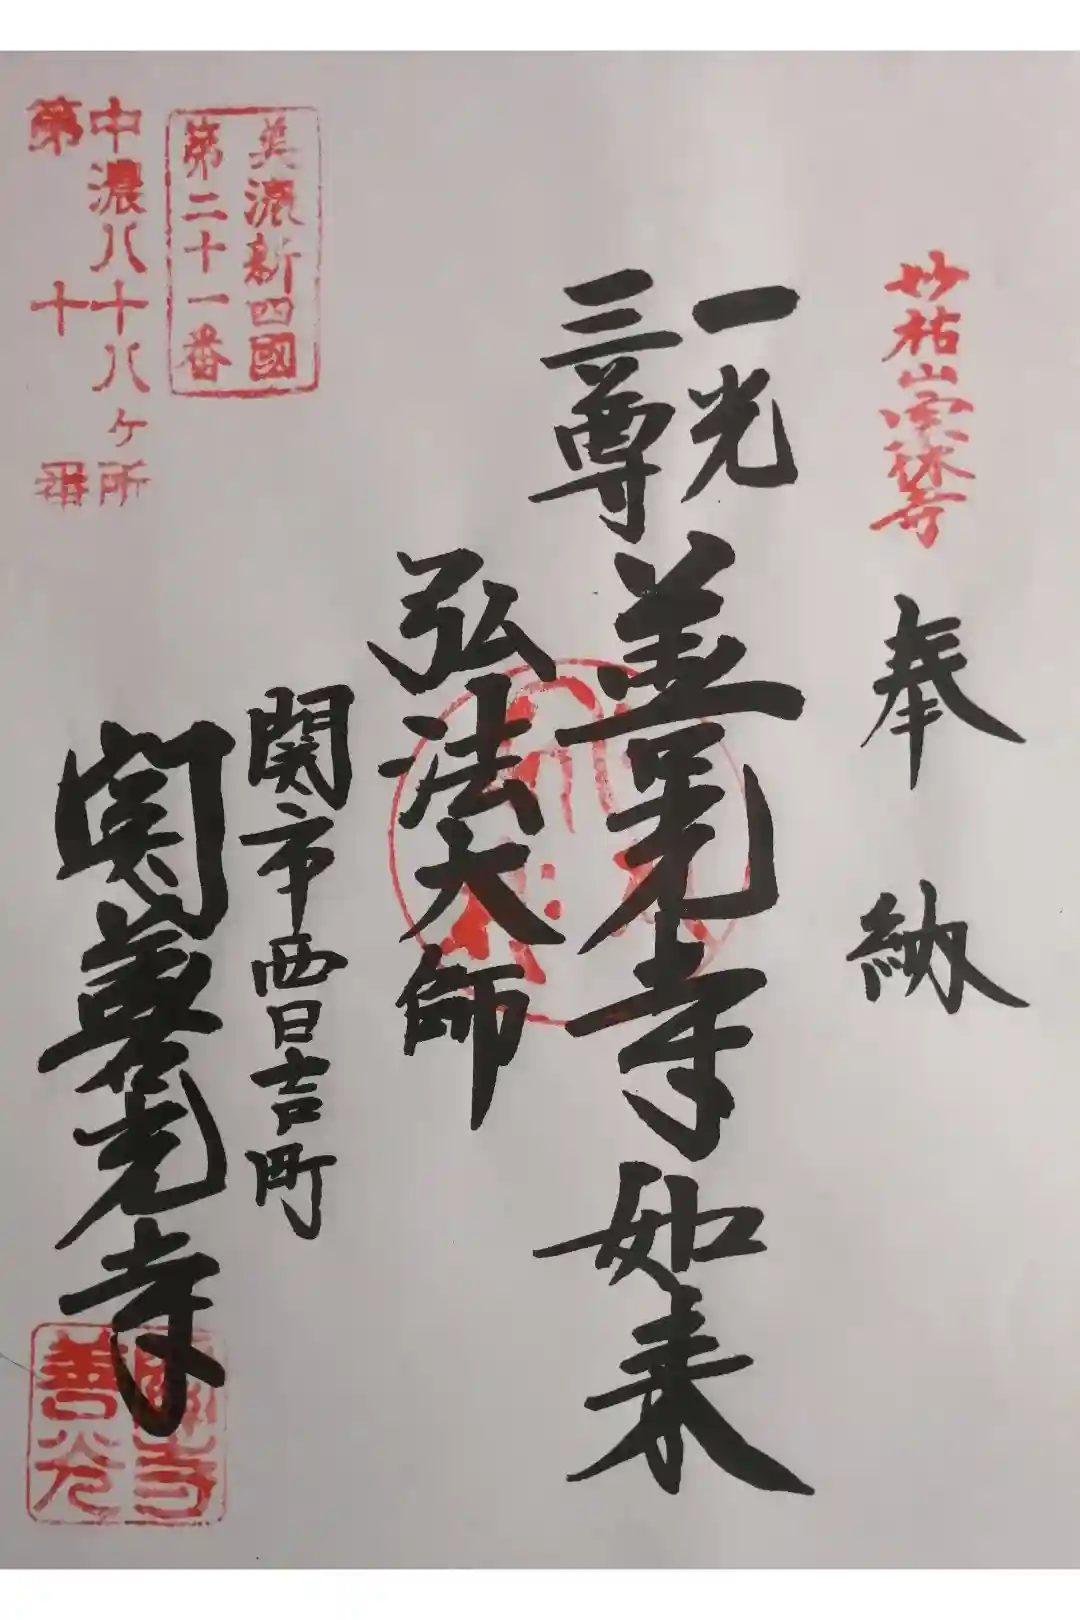 妙祐山宗休寺
奉納
一光
三尊
善光寺如来
弘法大師
関市西日吉町
関善光寺
美濃新四國
第二十一番
中濃八十八ヶ所
第十番
關善光寺